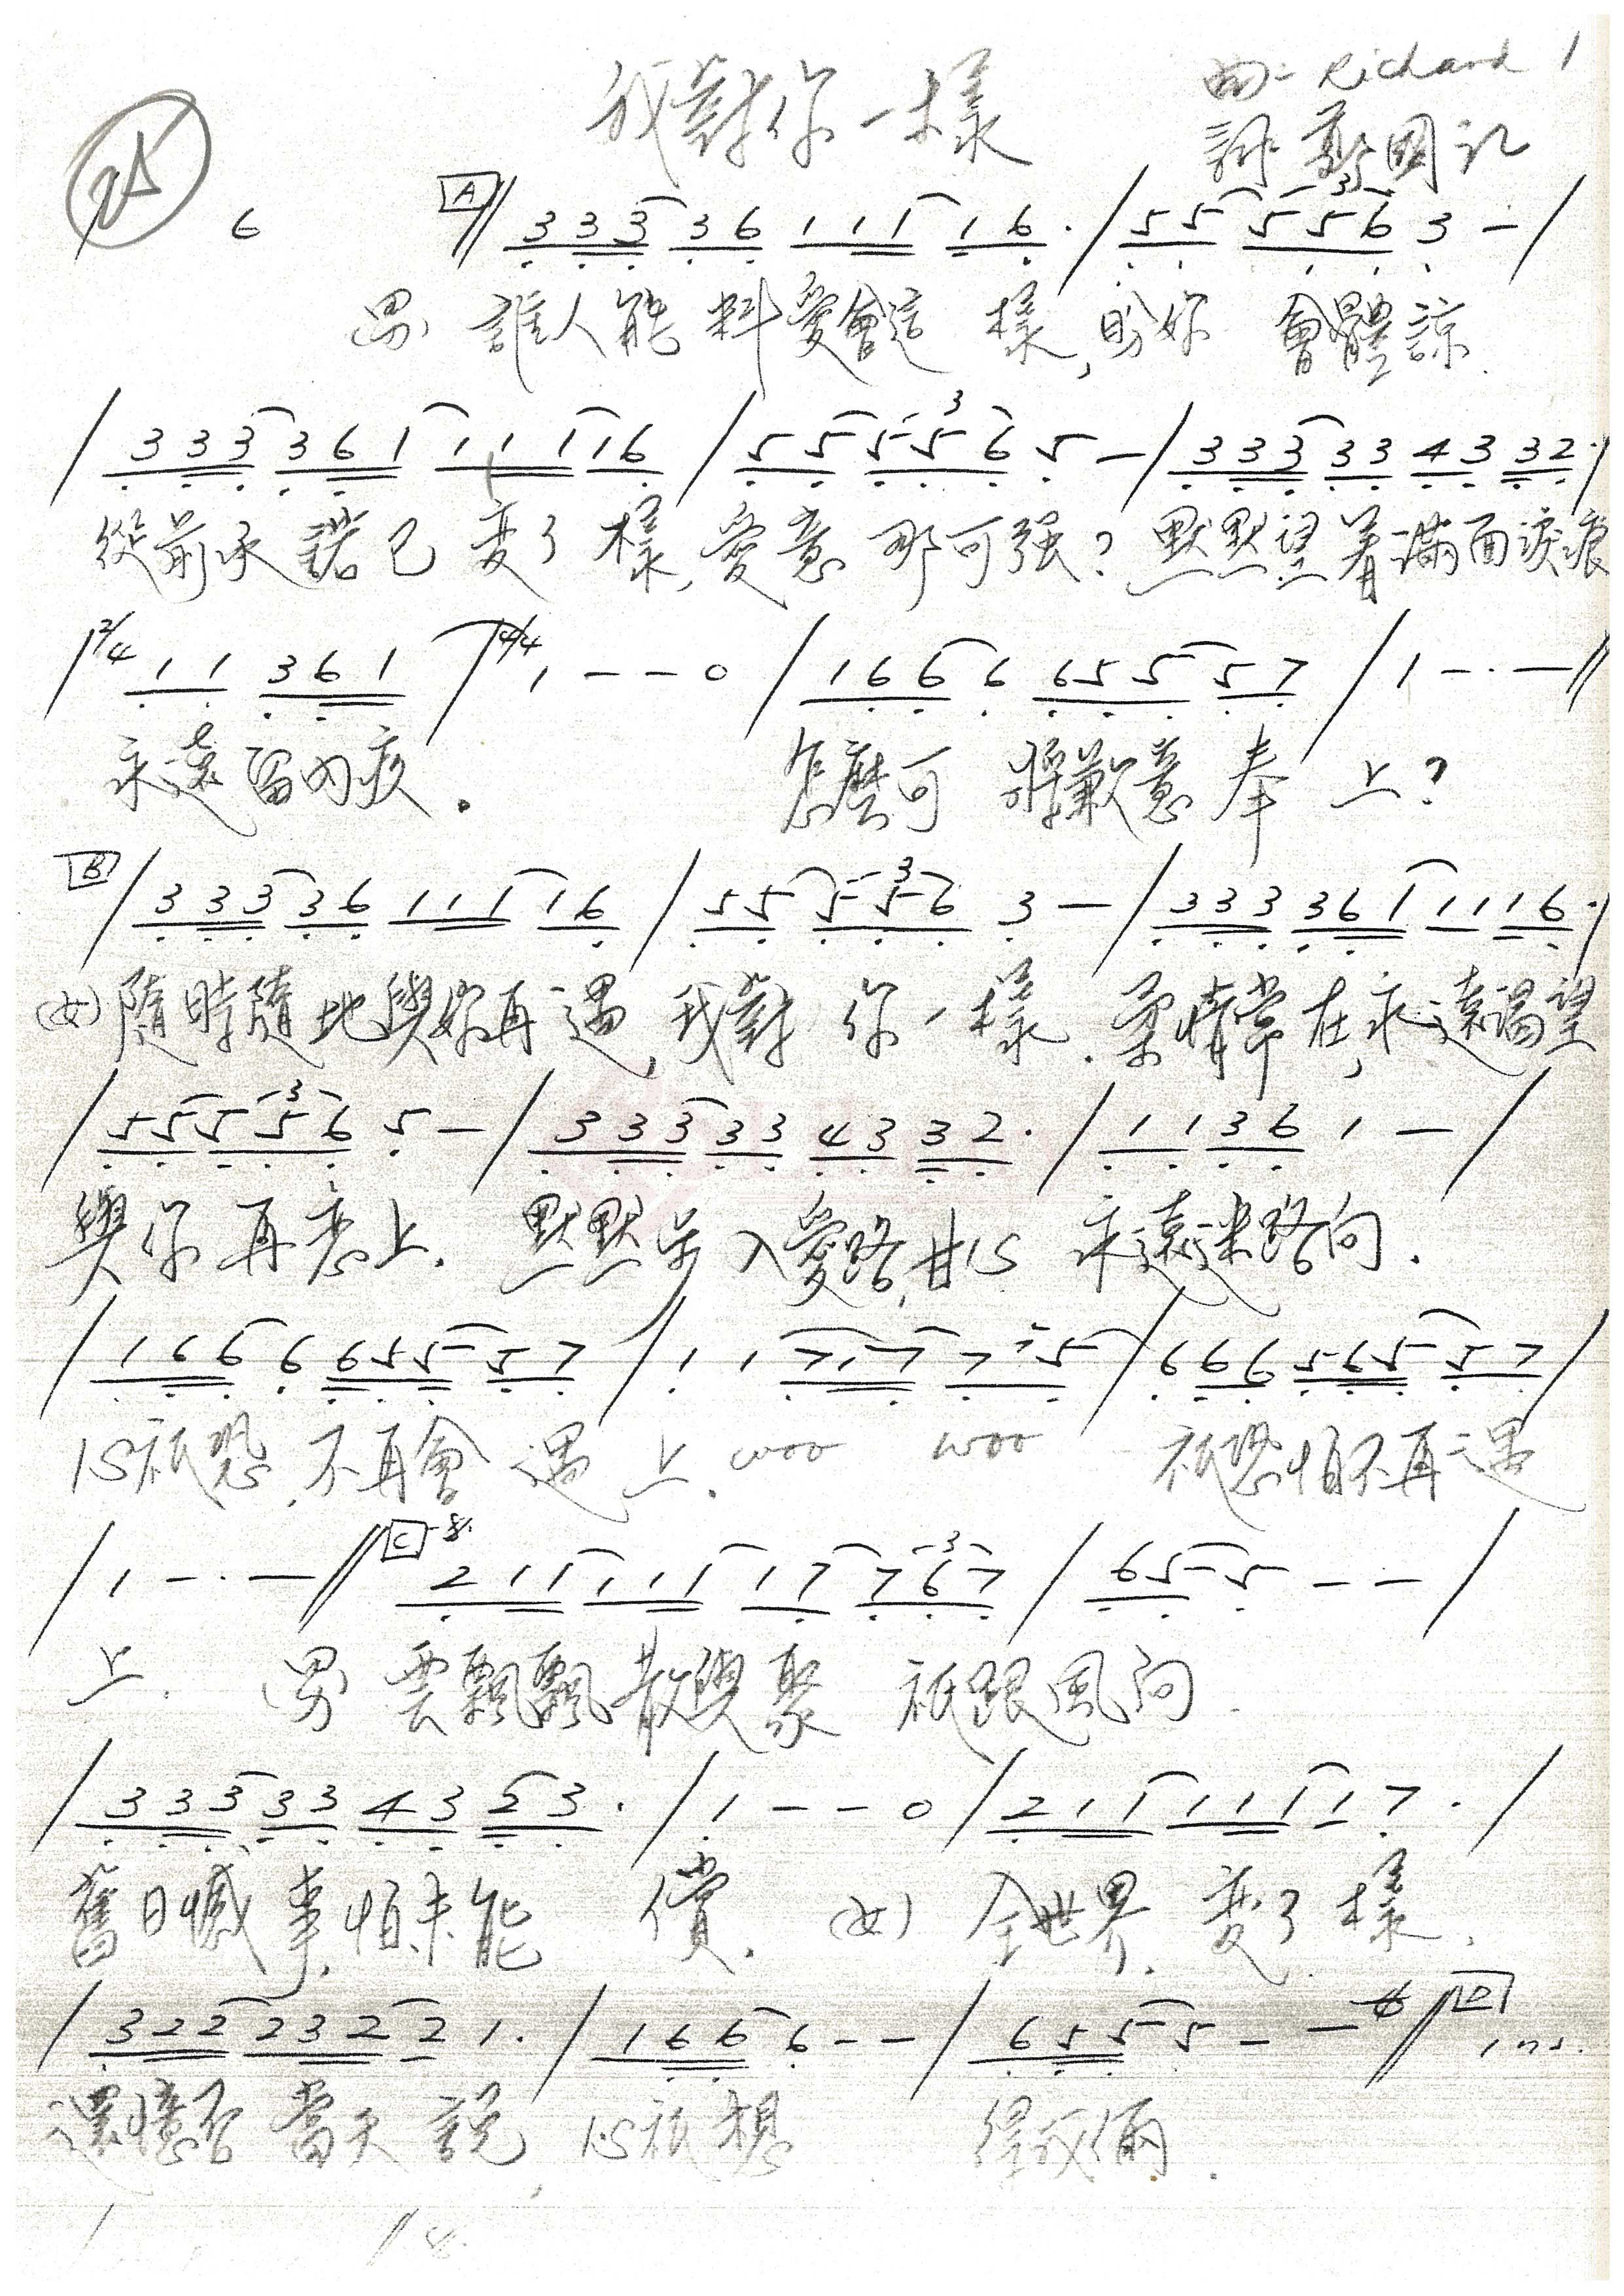 我對你一樣
曲: Richard 1
詞 鄭國江
25
6 A // 3 3 3 3 6 1 1 1 1 6 · / 5 5 5 5 6 3 — /
男 誰人能料愛會這樣, 盼妳會體諒.
/ 3 3 3 3 6 1 1 1 1 1 6 / 5 5 5 5 6 5 — / 3 3 3 3 3 4 3 3 2 · /
從前承諾已變了樣, 愛意那可强? 默默望着滿面淚痕
/ 2/4 1 1 3 6 1 / 4/4 1 — — 0 / 1 6 6 6 6 5 5 5 7 / 1 — · — //
永遠留內疚. 怎麽可將歉意奉上?
B / 3 3 3 3 6 1 1 1 1 6 / 5 5 5 5 6 3 — / 3 3 3 3 6 1 1 1 1 6 · /
(女) 隨時隨地與你再遇, 我對你一樣. 柔情常在, 永遠渴望
/ 5 5 5 5 6 5 — / 3 3 3 3 3 4 3 3 2 · / 1 1 3 6 1 — /
與你再戀上. 默默步入愛路, 甘心永遠迷路向.
/ 1 6 6 6 6 5 5 5 7 / 1 1 7 1 7 7 5 / 6 6 6 5 6 5 5 7 /
心祇恐, 不再會遇上. woo woo 祇恐怕不再遇
/ 1 — · — // C 2 1 1 1 1 1 1 7 7 6 7 / 6 5 5 — — /
上. 男 雲飄飄散與聚 祇跟風向.
/ 3 3 3 3 3 4 3 2 3 · / 1 — — 0 / 2 1 1 1 1 1 1 7 · /
舊日憾事, 怕未能償. (女) 全世界, 變了樣.
/ 3 2 2 2 3 2 2 1 · / 1 6 6 6 — — / 6 5 5 5 — — // D ins.
還憶否當天說, 心祇想 得我倆.
/ // 8